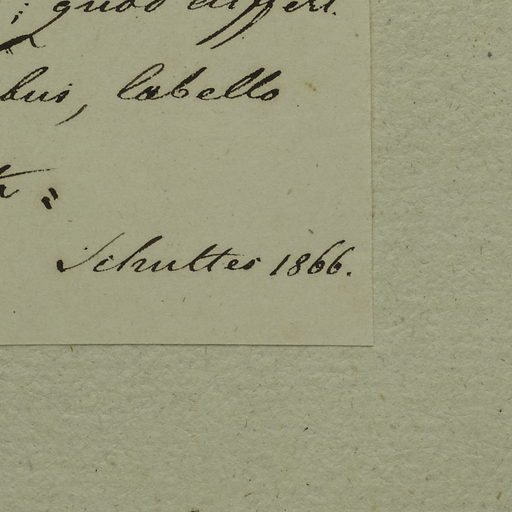 ; quod differt.
bus, labello
Schultes 1866.